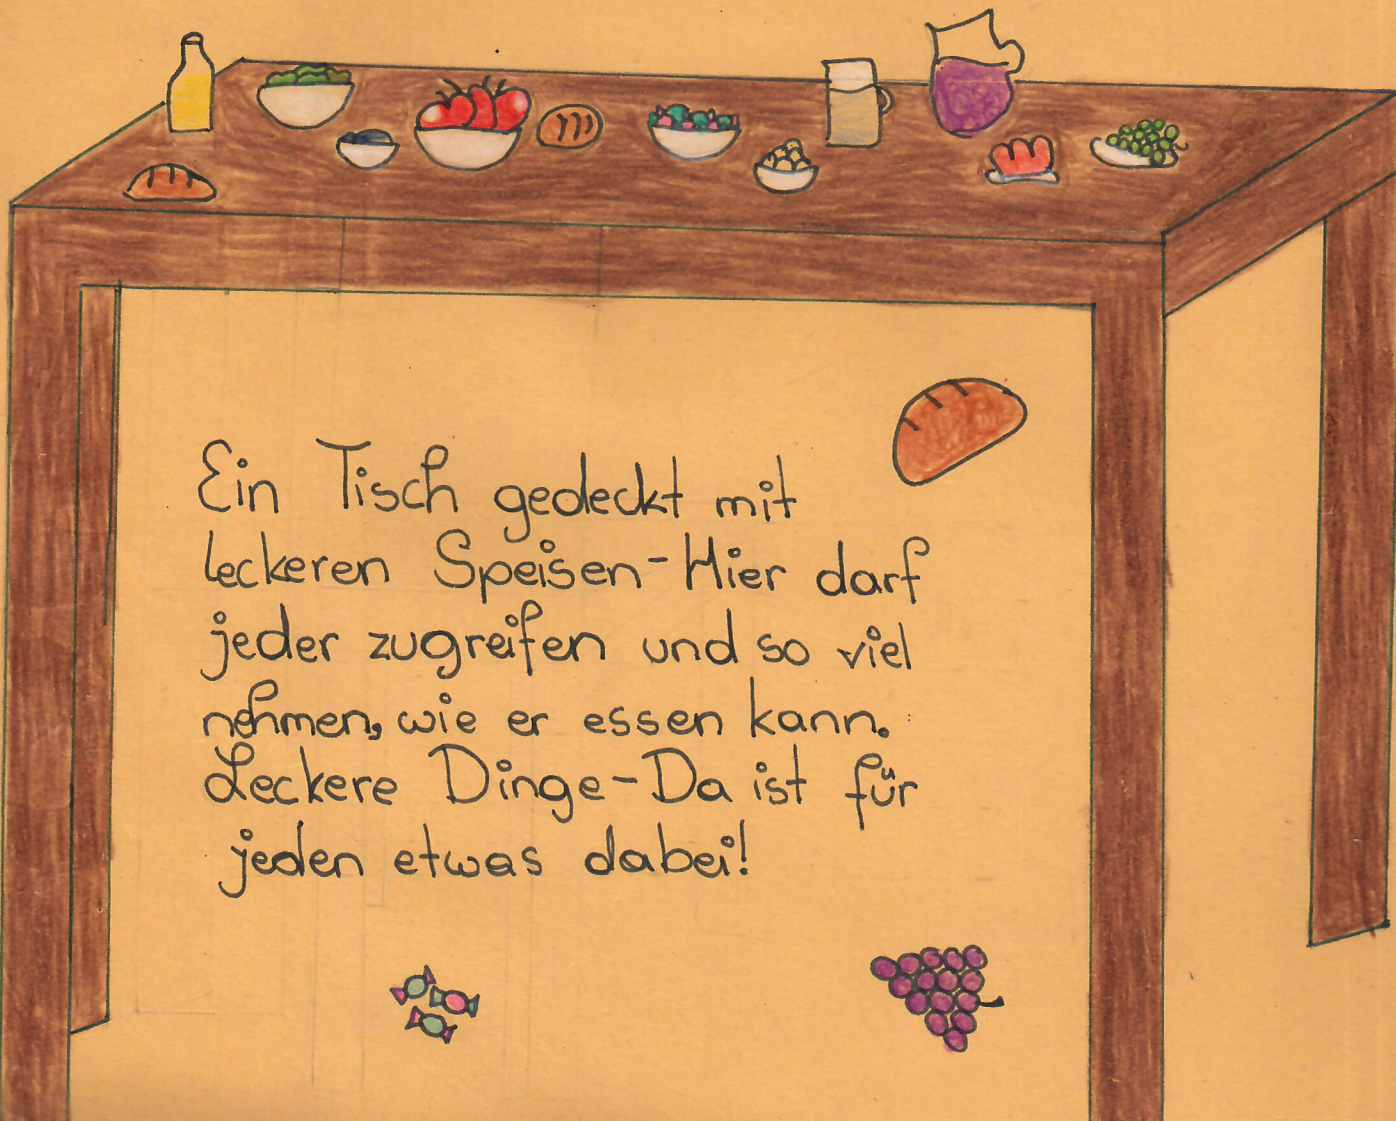 Ein Tisch gedeckt mit
leckeren Speisen-Hier darf
jeder zugreifen und so viel
nehmen, wie er essen kann.
Leckere Dinge-Da ist für
jeden etwas dabei!